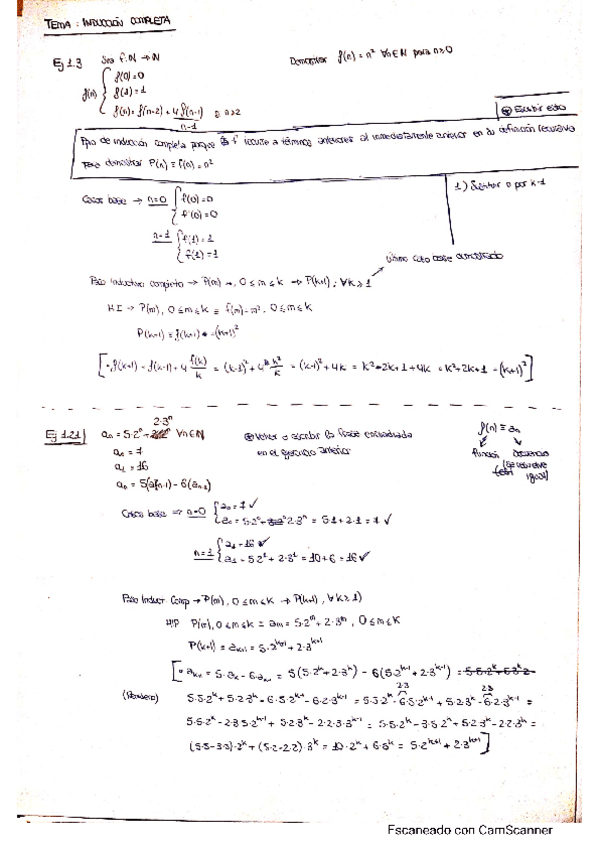 TEMA: INDUCCIÓN COMPLETA
Ej 1.3 Sea f: N → N Demostrar f(n) = n² ∀n∈N para n≥0
f(n) { f(0) = 0
f(1) = 1
f(n) = f(n-2) + 4 f(n-1)/n-1 n≥2
⊛ Escribir esto
Tipo de inducción completa porque f recurre a términos anteriores al inmediatamente anterior en su definición recursiva
Para demostrar P(n) ≡ f(n) = n²
1) Sustituir n por k-1
Casos base → n=0 { f(0) = 0
f(0) = 0
n=1 { f(1) = 1
f(1) = 1
último caso base demostrado
Paso inductivo completo → P(m), 0≤m≤k → P(k+1), ∀k≥1
H.I → P(m), 0≤m≤k ≡ f(m) = m², 0≤m≤k
P(k+1) ≡ f(k+1) = (k+1)²
[ f(k+1) = f(k-1) + 4 f(k)/k = (k-1)² + 4 k²/k = (k-1)² + 4k = k² - 2k + 1 + 4k = k² + 2k + 1 = (k+1)² ]
2·3ⁿ
Ej 1.21 aₙ = 5·2ⁿ + ∀n∈N ⊛ Volver a escribir la frase encuadrada
en el ejercicio anterior
f(n) ≡ aₙ
función
a₀ = 7
a₁ = 16
aₙ = 5(aₙ₋₁) - 6(aₙ₋₂)
Casos base → n=0 { a₀ = 7 ✓
a₀ = 5·2⁰ + 2·3⁰ = 5·1 + 2·1 = 7 ✓
n=1 { a₁ = 16 ✓
a₁ = 5·2¹ + 2·3¹ = 10 + 6 = 16 ✓
Paso Induct Comp → P(m), 0≤m≤k → P(k+1), ∀k≥1)
HIP P(m), 0≤m≤k ≡ aₘ = 5·2ᵐ + 2·3ᵐ, 0≤m≤k
P(k+1) ≡ aₖ₊₁ = 5·2ᵏ⁺¹ + 2·3ᵏ⁺¹
[ aₖ₊₁ = 5·aₖ - 6·aₖ₋₁ = 5(5·2ᵏ + 2·3ᵏ) - 6(5·2ᵏ⁻¹ + 2·3ᵏ⁻¹) =
2·3 2·3
5·5·2ᵏ + 5·2·3ᵏ - 6·5·2ᵏ⁻¹ - 6·2·3ᵏ⁻¹ = 5·5·2ᵏ - 6·5·2ᵏ⁻¹ + 5·2·3ᵏ - 6·2·3ᵏ⁻¹ =
5·5·2ᵏ - 2·3·5·2ᵏ⁻¹ + 5·2·3ᵏ - 2·2·3·3ᵏ⁻¹ = 5·5·2ᵏ - 3·5·2ᵏ + 5·2·3ᵏ - 2·2·3ᵏ =
(5·5-3·5)·2ᵏ + (5·2-2·2)·3ᵏ = 10·2ᵏ + 6·3ᵏ = 5·2ᵏ⁺¹ + 2·3ᵏ⁺¹ ]
Escaneado con CamScanner